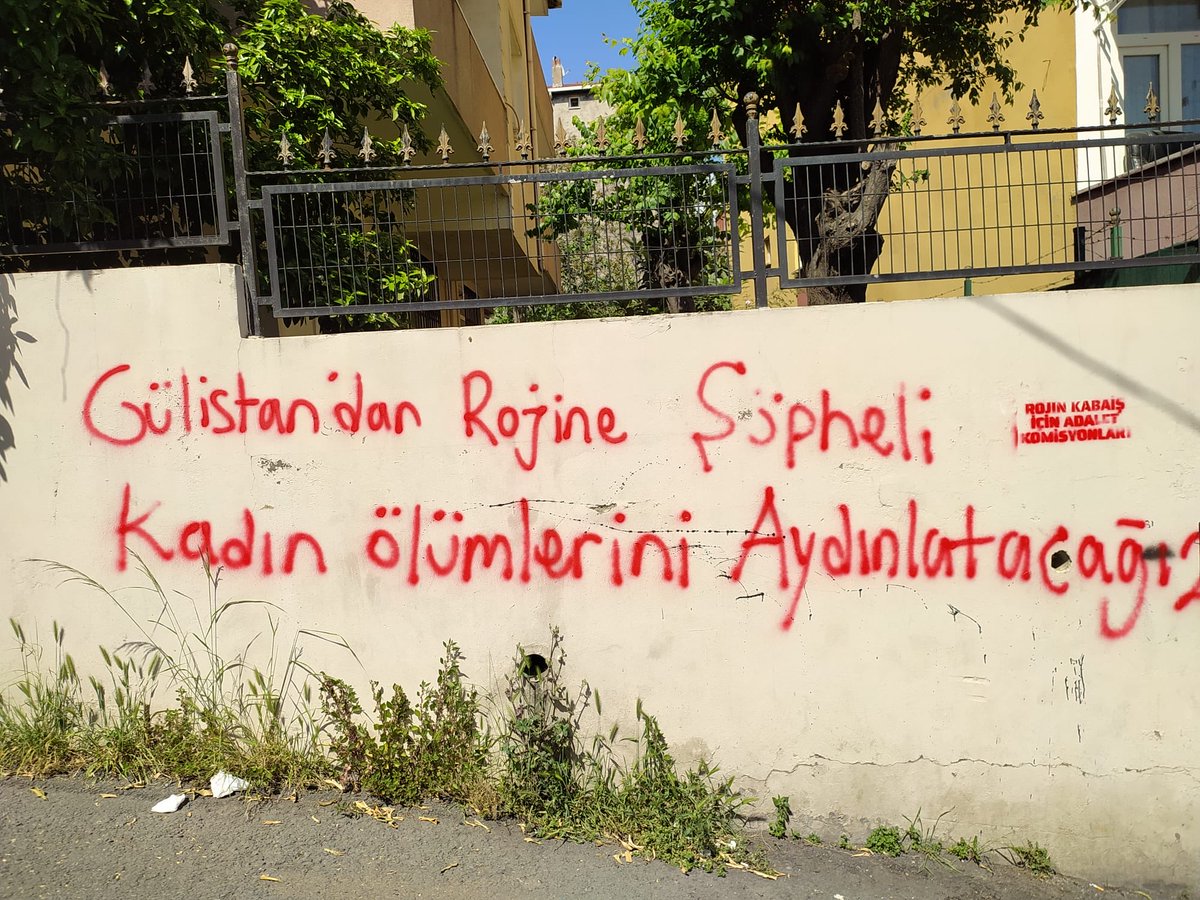 Gülistan'dan Rojine Şüpheli
Kadın ölümlerini Aydınlatacağız
ROJIN KABAİŞ
İÇİN ADALET
KOMİSYONLARI